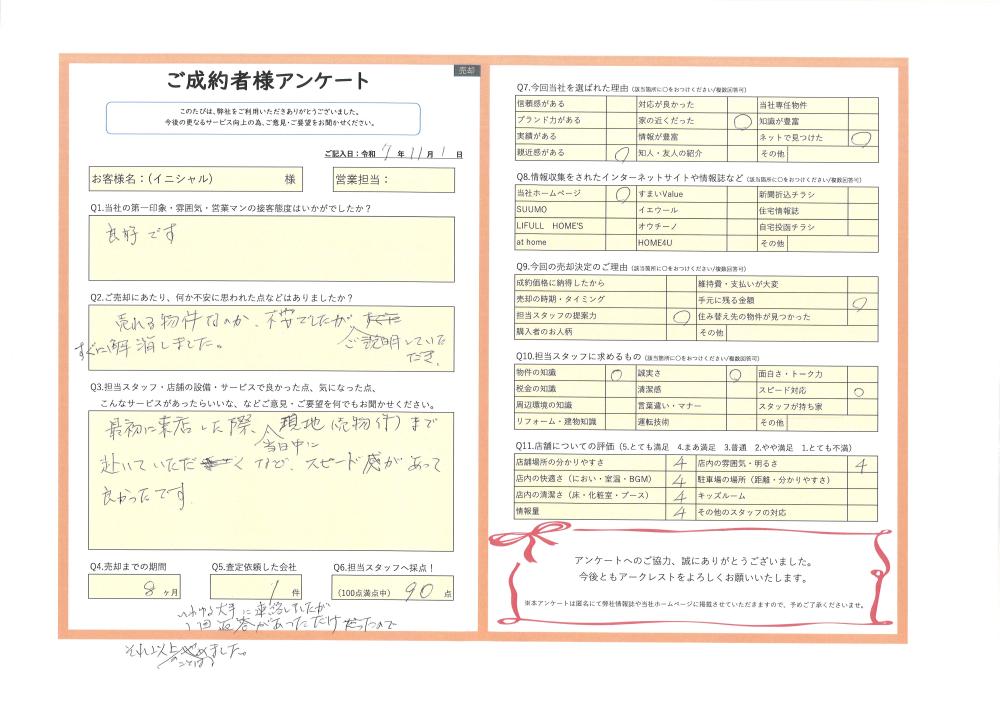 売却
ご成約者様アンケート
このたびは、弊社をご利用いただきありがとうございました。
今後の更なるサービス向上の為、ご意見・ご要望をお聞かせください。
ご記入日：令和 7 年 11 月 1 日
お客様名：(イニシャル) 様
営業担当：
Q1.当社の第一印象・雰囲気・営業マンの接客態度はいかがでしたか？
良好です
Q2.ご売却にあたり、何か不安に思われた点などはありましたか？
売れる物件なのか、不安でしたが
ご説明していただき、
すぐに解消しました。
Q3.担当スタッフ・店舗の設備・サービスで良かった点、気になった点、
こんなサービスがあったらいいな、などご意見・ご要望を何でもお聞かせください。
最初に来店した際、現地(売物件)まで
当日中に
赴いていただくなど、スピード感があって
良かったです。
Q4.売却までの期間
8 ヶ月
Q5.査定依頼した会社
1 件
Q6.担当スタッフへ採点！
(100点満点中) 90 点
いわゆる大手に連絡しましたが
1回返答があっただけだったので
それ以上 やめました。
Q7.今回当社を選ばれた理由 (該当箇所に○をおつけください/複数回答可)
信頼感がある 対応が良かった 当社専任物件
ブランド力がある 家の近くだった ○ 知識が豊富
実績がある 情報が豊富 ネットで見つけた ○
親近感がある ○ 知人・友人の紹介 その他
Q8.情報収集をされたインターネットサイトや情報誌など (該当箇所に○をおつけください/複数回答可)
当社ホームページ ○ すまいValue 新聞折込チラシ
SUUMO イエウール 住宅情報誌
LIFULL HOME'S オウチーノ 自宅投函チラシ
at home HOME4U その他
Q9.今回の売却決定のご理由 (該当箇所に○をおつけください/複数回答可)
成約価格に納得したから 維持費・支払いが大変
売却の時期・タイミング 手元に残る金額 ○
担当スタッフの提案力 ○ 住み替え先の物件が見つかった
購入者のお人柄 その他
Q10.担当スタッフに求めるもの (該当箇所に○をおつけください/複数回答可)
物件の知識 ○ 誠実さ ○ 面白さ・トーク力
税金の知識 清潔感 スピード対応 ○
周辺環境の知識 言葉遣い・マナー スタッフが持ち家
リフォーム・建物知識 運転技術 その他
Q11.店舗についての評価 (5.とても満足 4.まあ満足 3.普通 2.やや満足 1.とても不満)
店舗場所の分かりやすさ 4 店内の雰囲気・明るさ 4
店内の快適さ(におい・室温・BGM) 4 駐車場の場所(距離・分かりやすさ)
店内の清潔さ(床・化粧室・ブース) 4 キッズルーム
情報量 4 その他のスタッフの対応
アンケートへのご協力、誠にありがとうございました。
今後ともアークレストをよろしくお願いいたします。
※本アンケートは匿名にて弊社情報誌や当社ホームページに掲載させていただきますので、予めご了承くださいませ。